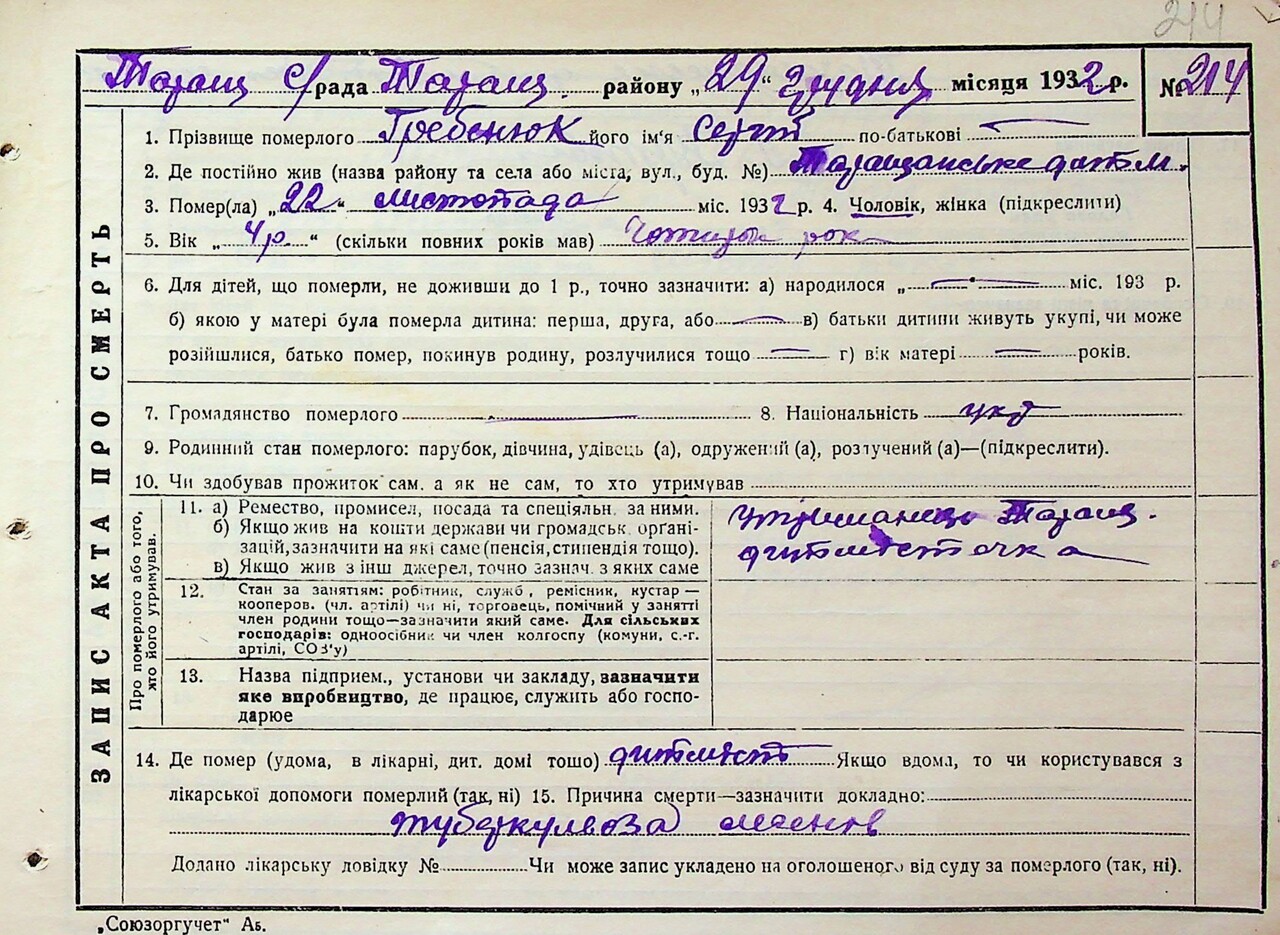 214
Таращ с/рада Таращ. району „29" Грудня місяця 1932 р. № 214
ЗАПИС АКТА ПРО СМЕРТЬ
1. Прізвище померлого Гребенюк його ім'я Сергій по-батькові —
2. Де постійно жив (назва району та села або міста, вул., буд. №) Таращанське дитм.
3. Помер(ла) „22" листопада міс. 1932 р. 4. Чоловік, жінка (підкреслити)
5. Вік „4р." (скільки повних років мав) Чотири рок
6. Для дітей, що померли, не доживши до 1 р., точно зазначити: а) народилося „— міс. 193 р.
б) якою у матері була померла дитина: перша, друга, або — в) батьки дитини живуть укупі, чи може
розійшлися, батько помер, покинув родину, розлучилися тощо — г) вік матері — років.
7. Громадянство померлого — 8. Національність укр
9. Родинний стан померлого: парубок, дівчина, удівець (а), одружений (а), розлучений (а)—(підкреслити).
10. Чи здобував прожиток сам, а як не сам, то хто утримував
Про померлого або того, хто його утримував.
11. а) Ремество, промисел, посада та спеціяльн. за ними.
б) Якщо жив на кошти держави чи громадськ. орґані-
зацій, зазначити на які саме (пенсія, стипендія тощо).
в) Якщо жив з інш джерел, точно зазнач. з яких саме
утриманець Таращ.
дитмістечка
12. Стан за занятям: робітник, служб, ремісник, кустар—
кооперов. (чл. артілі) чи ні, торговець, помічний у занятті
член родини тощо—зазначити який саме. Для сільських
господарів: одноосібник чи член колгоспу (комуни, с.-г.
артілі, СОЗ'у)
13. Назва підприєм., установи чи закладу, зазначити
яке виробництво, де працює, служить або госпо-
дарює
14. Де помер (удома, в лікарні, дит. домі тощо) дитміст Якщо вдома, то чи користувався з
лікарської допомоги померлий (так, ні) 15. Причина смерти—зазначити докладно:
туберкульоза легенів
Додано лікарську довідку № Чи може запис укладено на оголошеного від суду за померлого (так, ні).
„Союзоргучет" Аб.